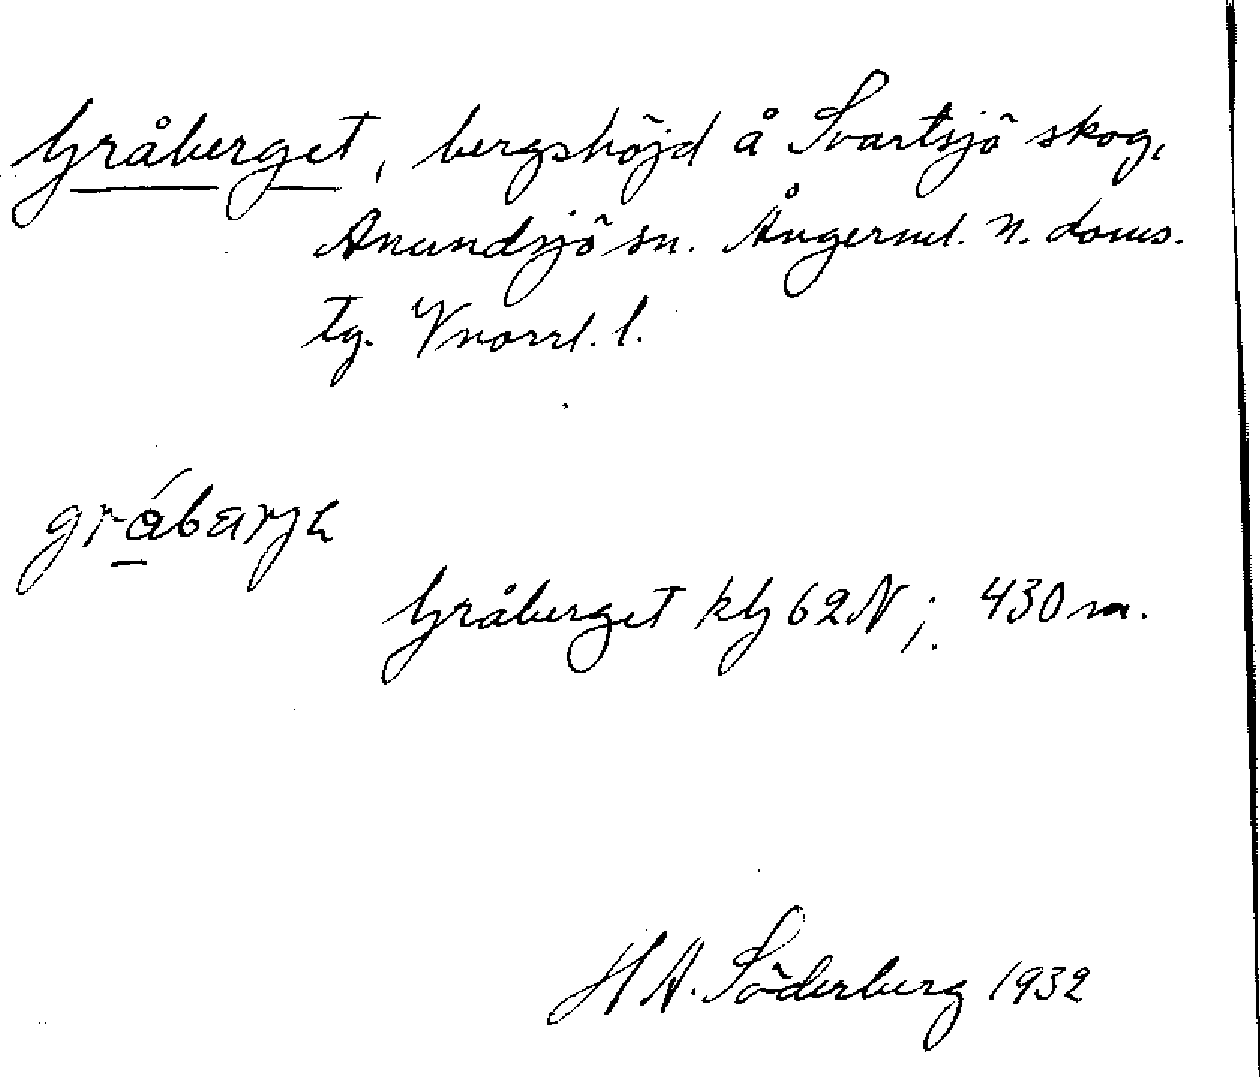 Gråberget, bergshöjd å Svartsjö skog,
Anundsjö sn. Ångerml. n. doms.
tg. Vnorrl. l.
Gråberget kbg 62N; 430 m.
H A. Söderberg 1932